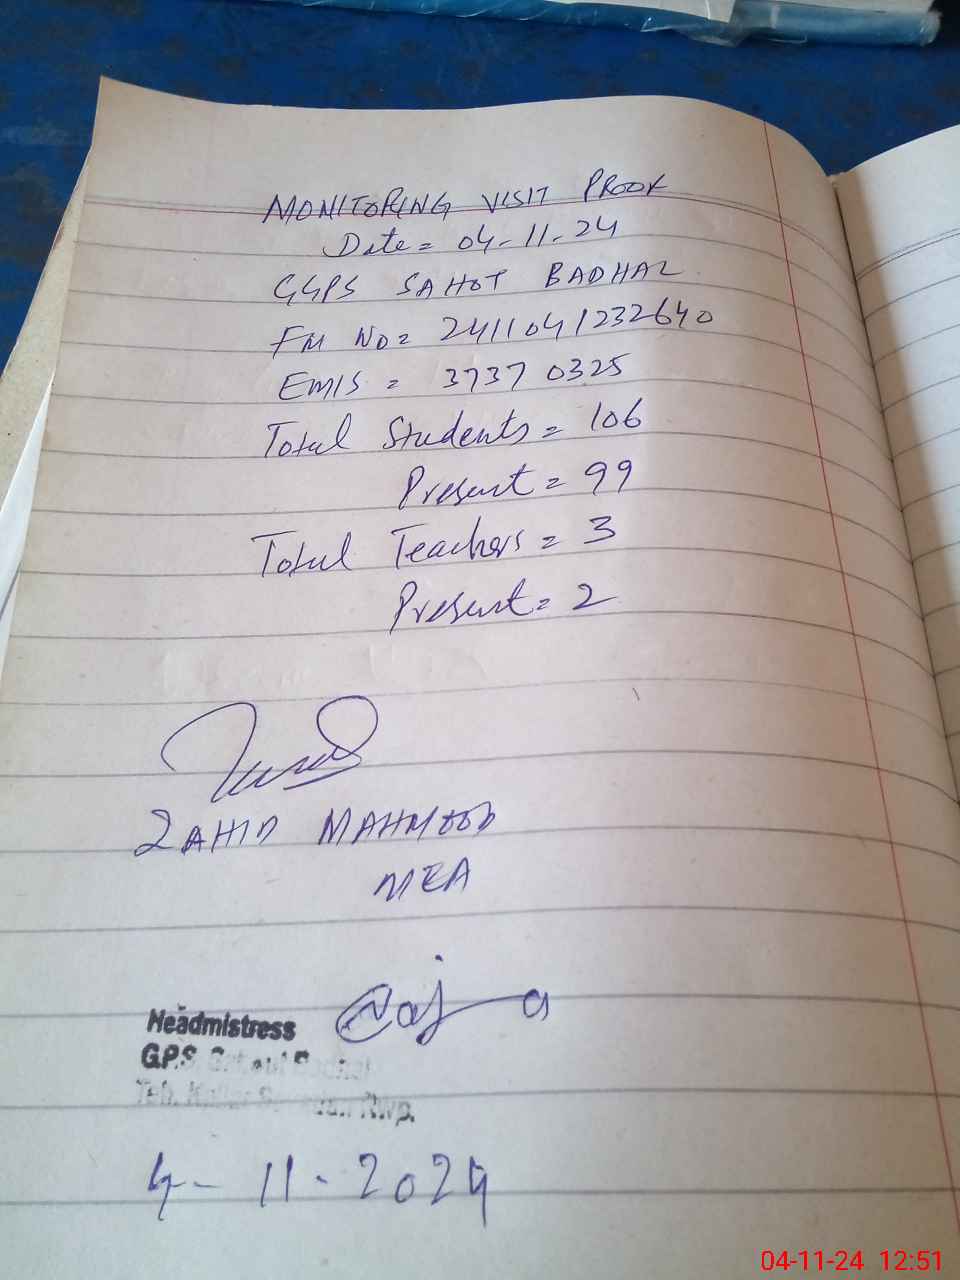 MONITORING VISIT PROOF
Date = 04-11-24
GGPS SAHOT BADHAL
FM NO = 2411041232640
EMIS = 37370325
Total Students = 106
Present = 99
Total Teachers = 3
Present = 2
ZAHID MAHMOOD
MEA
Headmistress
G.P.S.
Teh. Rwp.
4-11-2024
04-11-24 12:51